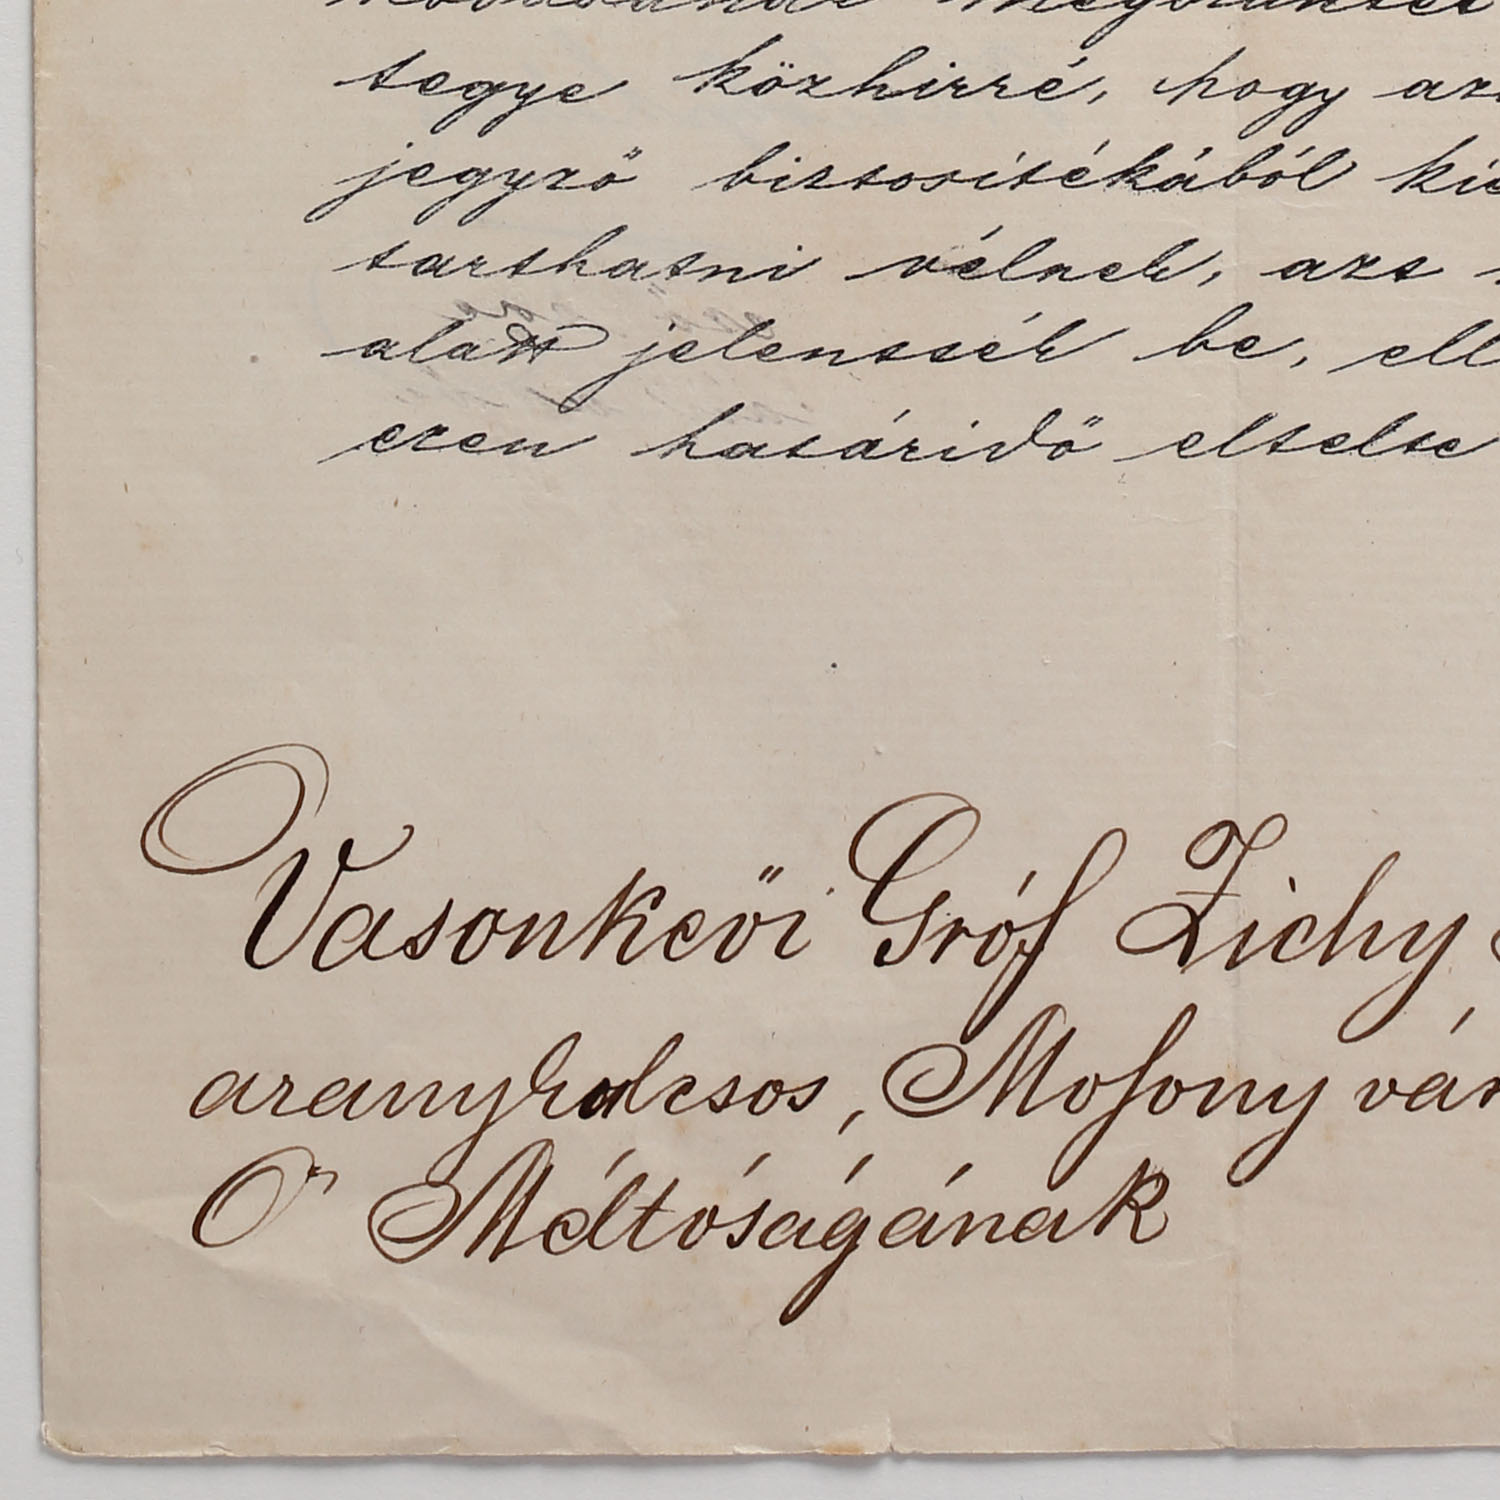 tegye közhirré, hogy
jegyző biztosítékából
tarthatni vélnek, azt
alatt jelentsék be,
ezen határidő eltelte
Vasonkeői Gróf Zichy
aranykulcsos, Mosony
Ő Méltóságának